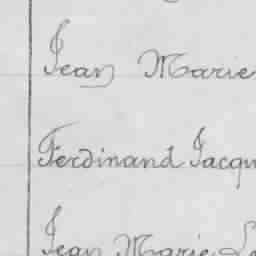 Jean Marie
Ferdinand Jacqu
Jean Marie